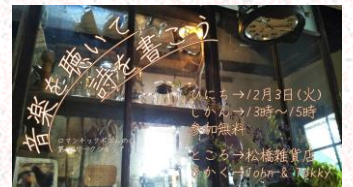 音楽を聴いて
話を書こう
ひにち→12月3日(火)
じかん→13時～15時
参加無料
ところ→松橋雑貨店
きかく→John & Tukky